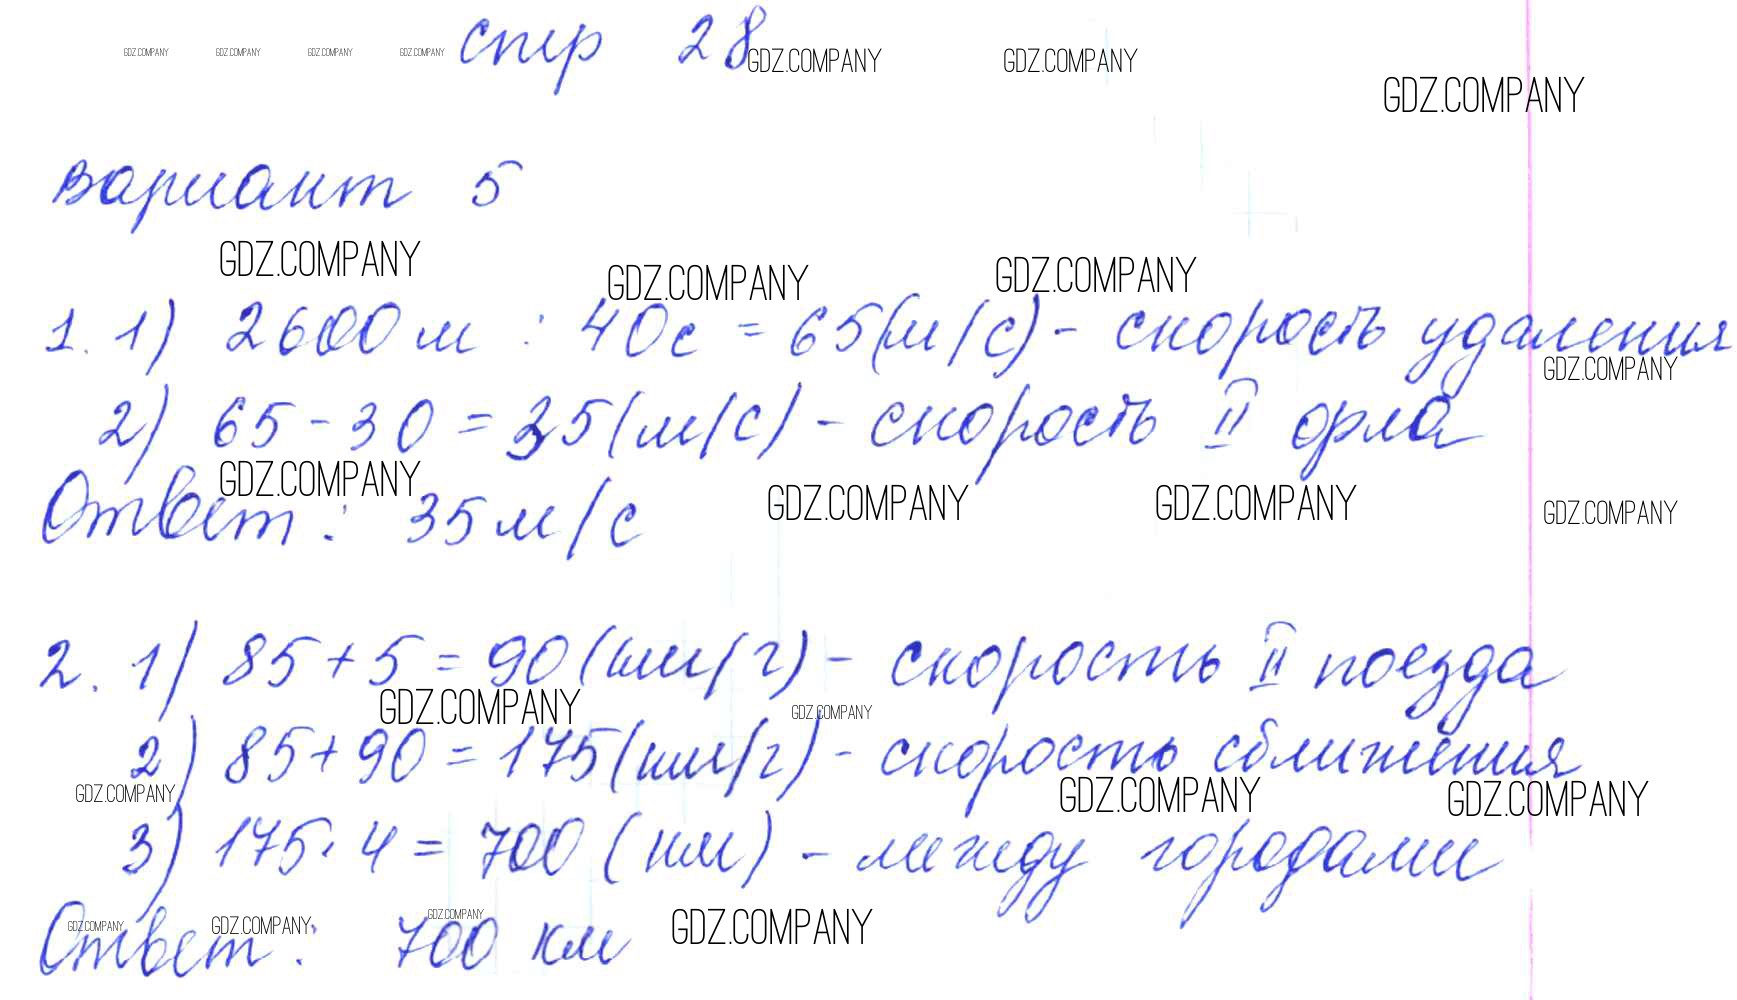 GDZ.COMPANY GDZ.COMPANY GDZ.COMPANY GDZ.COMPANY стр 28 GDZ.COMPANY GDZ.COMPANY
GDZ.COMPANY
вариант 5
GDZ.COMPANY GDZ.COMPANY GDZ.COMPANY
1. 1) 2600 м : 40с = 65(м/с) - скорость удаления
GDZ.COMPANY
2) 65 - 30 = 35(м/с) - скорость II орла
GDZ.COMPANY GDZ.COMPANY GDZ.COMPANY GDZ.COMPANY
Ответ: 35 м/с
2. 1) 85 + 5 = 90 (км/г) - скорость II поезда
GDZ.COMPANY GDZ.COMPANY
2) 85 + 90 = 175 (км/г) - скорость сближения
GDZ.COMPANY GDZ.COMPANY GDZ.COMPANY
3) 175 · 4 = 700 (км) - между городами
GDZ.COMPANY GDZ.COMPANY GDZ.COMPANY GDZ.COMPANY
Ответ: 700 км